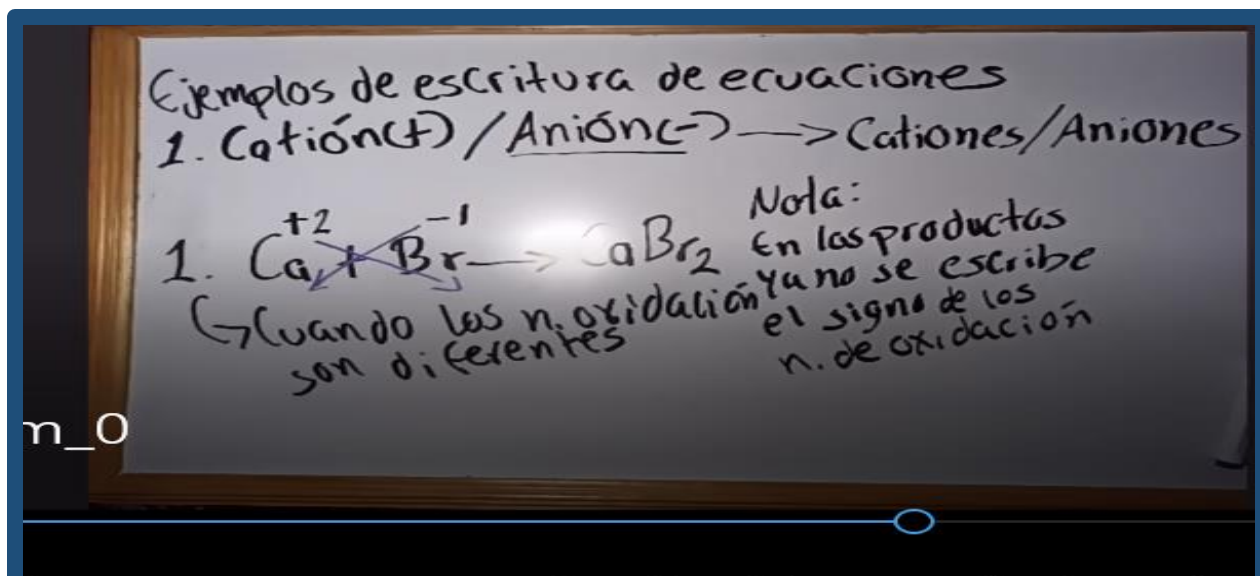 Ejemplos de escritura de ecuaciones
1. Catión(+) / Anión(-) —> Cationes/Aniones
1. Ca⁺² + Br⁻¹ —> CaBr₂
↳Cuando los n. oxidación
son diferentes
Nota:
En los productos
ya no se escribe
el signo de los
n. de oxidación
m_0